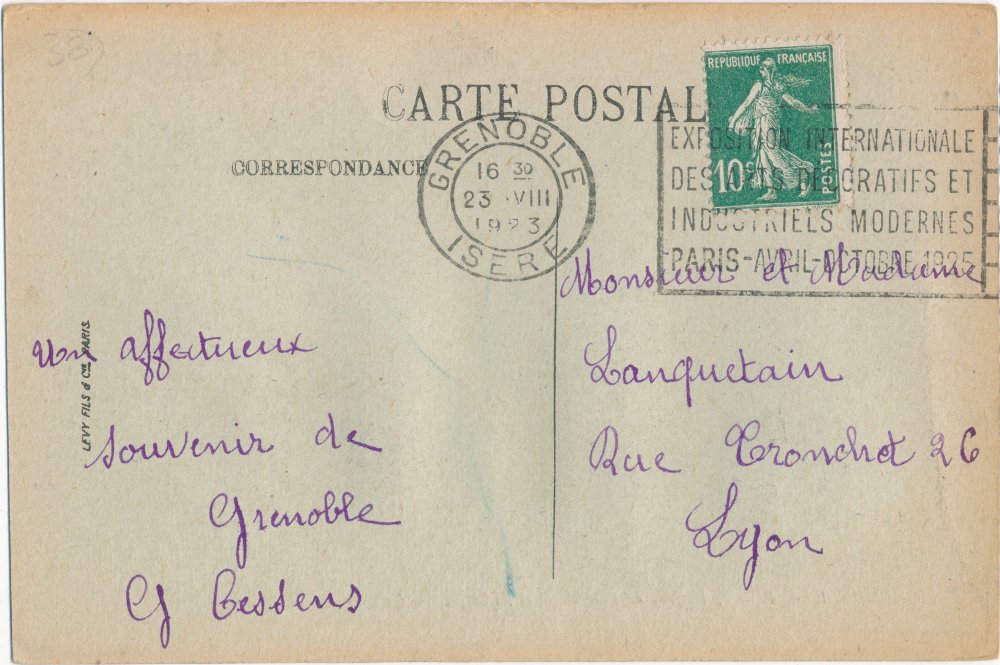 CARTE POSTAL
CORRESPONDANCE
REPUBLIQUE FRANÇAISE
10c
POSTES
GRENOBLE
16 30
23 VIII
1923
ISERE
EXPOSITION INTERNATIONALE
DES ARTS DECORATIFS ET
INDUSTRIELS MODERNES
PARIS-AVRIL-OCTOBRE 1925
LEVY FILS & Cie PARIS.
Un affectueux
souvenir de
Grenoble
G Cessens
Monsieur et Madame
Lanquetain
Rue Tronchet 26
Lyon